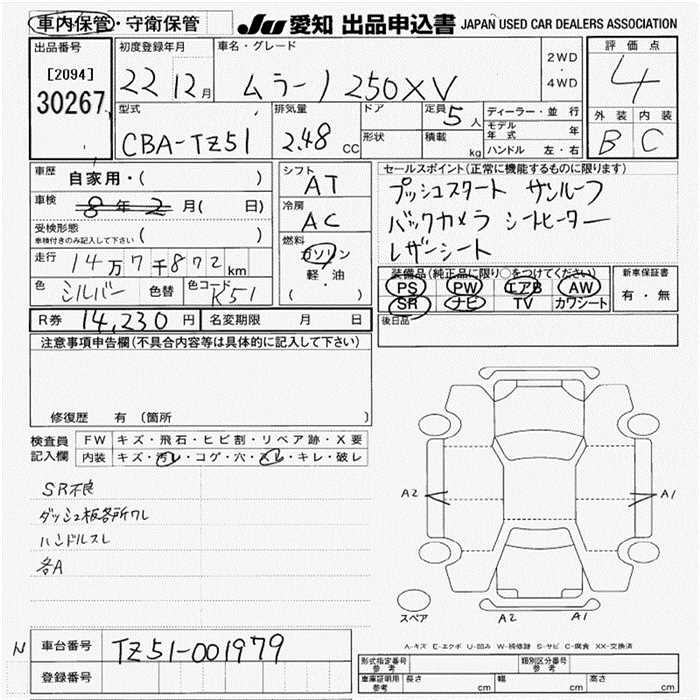 車内保管・守衛保管
JU 愛知 出品申込書 JAPAN USED CAR DEALERS ASSOCIATION
出品番号
[2094]
30267
初度登録年月
22 12月
車名・グレード
ムラーノ 250XV
2WD
・
4WD
評価点
4
外装 内装
B C
型式
CBA-TZ51
排気量
2.48 CC
ドア
形状
定員 5人
積載 kg
ディーラー・並行
モデル年式 年
ハンドル 左・右
車歴 自家用・( )
車検 8年2月( 日)
受検形態
車検付きのみ記入して下さい ( )
走行 14万7千872km
色 シルバー 色替 色コード K51
シフト
AT
冷房
AC
燃料
ガソリン
軽・油
( )
セールスポイント(正常に機能するものに限ります)
プッシュスタート サンルーフ
バックカメラ シートヒーター
レザーシート
装備品(純正品に限り○をつけてください)
PS PW エアB AW
SR ナビ TV カワシート
新車保証書
有・無
後日品
R券 14,230円 名変期限 月 日
注意事項申告欄(不具合内容等は具体的に記入して下さい)
修復歴 有 (箇所 )
検査員
記入欄
FW キズ・飛石・ヒビ割・リペア跡・X要
内装 キズ・汚レ・コゲ・穴・スレ・キレ・破レ
SR不良
ダッシュ板各所ワレ
ハンドルスレ
各A
A2 A1
スペア
A2 A1
A-キズ E-エクボ U-凹み W-補修跡 S-サビ C-腐食 XX-交換済
N 車台番号 TZ51-001979
登録番号
形式指定番号
参考
類別区分番号
参考
車庫証明用
参考
長さ cm 幅 cm 高さ cm